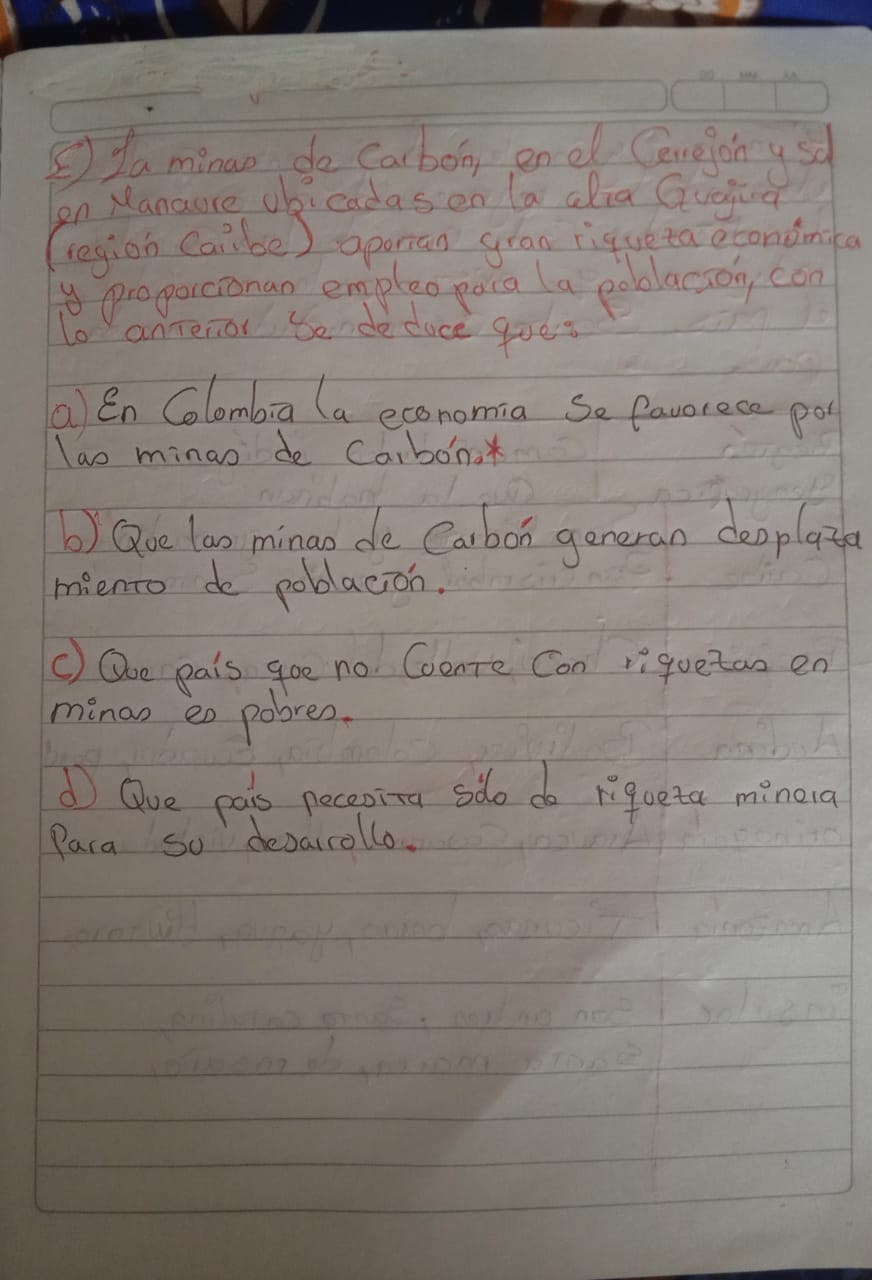 5) La minas de Carbón, en el Cerrejón y sal
en Manaure Ubicadas en la alta Guajira
(region Caribe) aportan gran riqueza económica
y proporcionan empleo para la poblaciòn, con
lo anterior se deduce que:
a) En Colombia la economía Se favorece por
las minas de Carbón.*
b) Que las minas de Carbón generan desplaza
miento de poblaciòn.
c) Que país que no Cuente Con riquezas en
minas es pobres.
d) Que país necesita sólo de riqueza minera
Para su desarrollo.